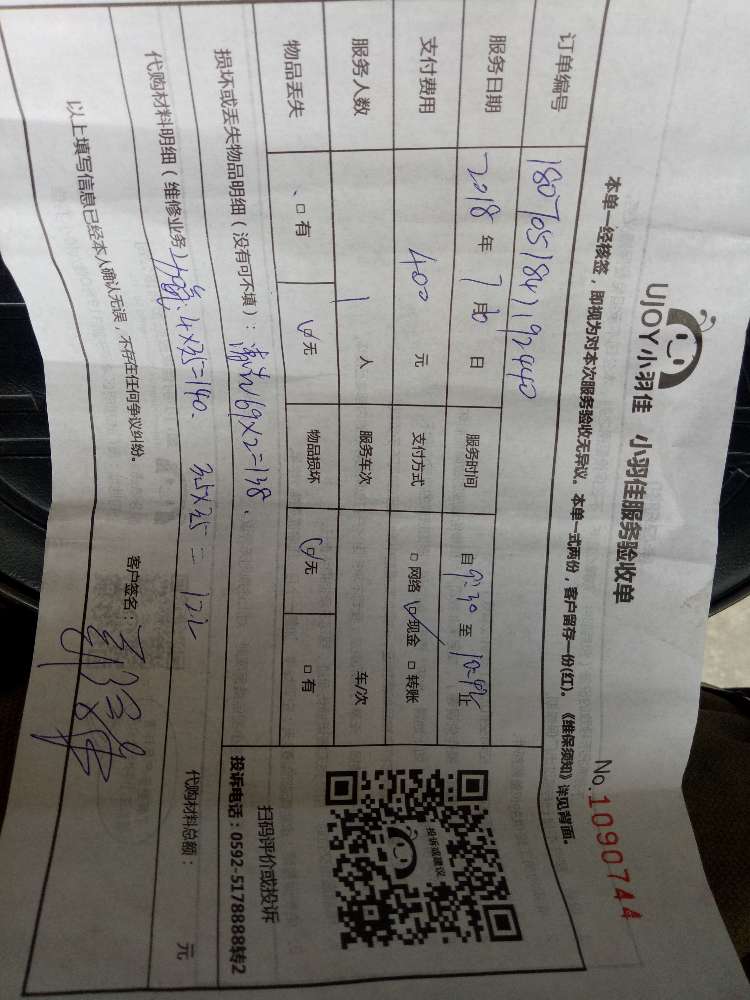 UJOY小羽佳 小羽佳服务验收单
No.1090744
本单一经核签，即视为对本次服务验收无异议。本单一式两份，客户留存一份(红)。《维保须知》详见背面。
订单编号 1807051847192440
服务日期 2018 年 7 月 日 服务时间 自 9:30 至 止
支付费用 400 元 支付方式 □ 网络 □ 现金 □ 转账
服务人数 1 人 服务车次 车/次
物品丢失 □ 有 □ 无 物品损坏 □ 无 □ 有
投诉或建议
扫码评价或投诉
投诉电话：0592-5178888转2
损坏或丢失物品明细（没有可不填）： 69×2=138.
代购材料明细（维修业务） 4×35=140. 3.5×35= 122 代购材料总额： 元
以上填写信息已经本人确认无误，不存在任何争议纠纷。 客户签名：